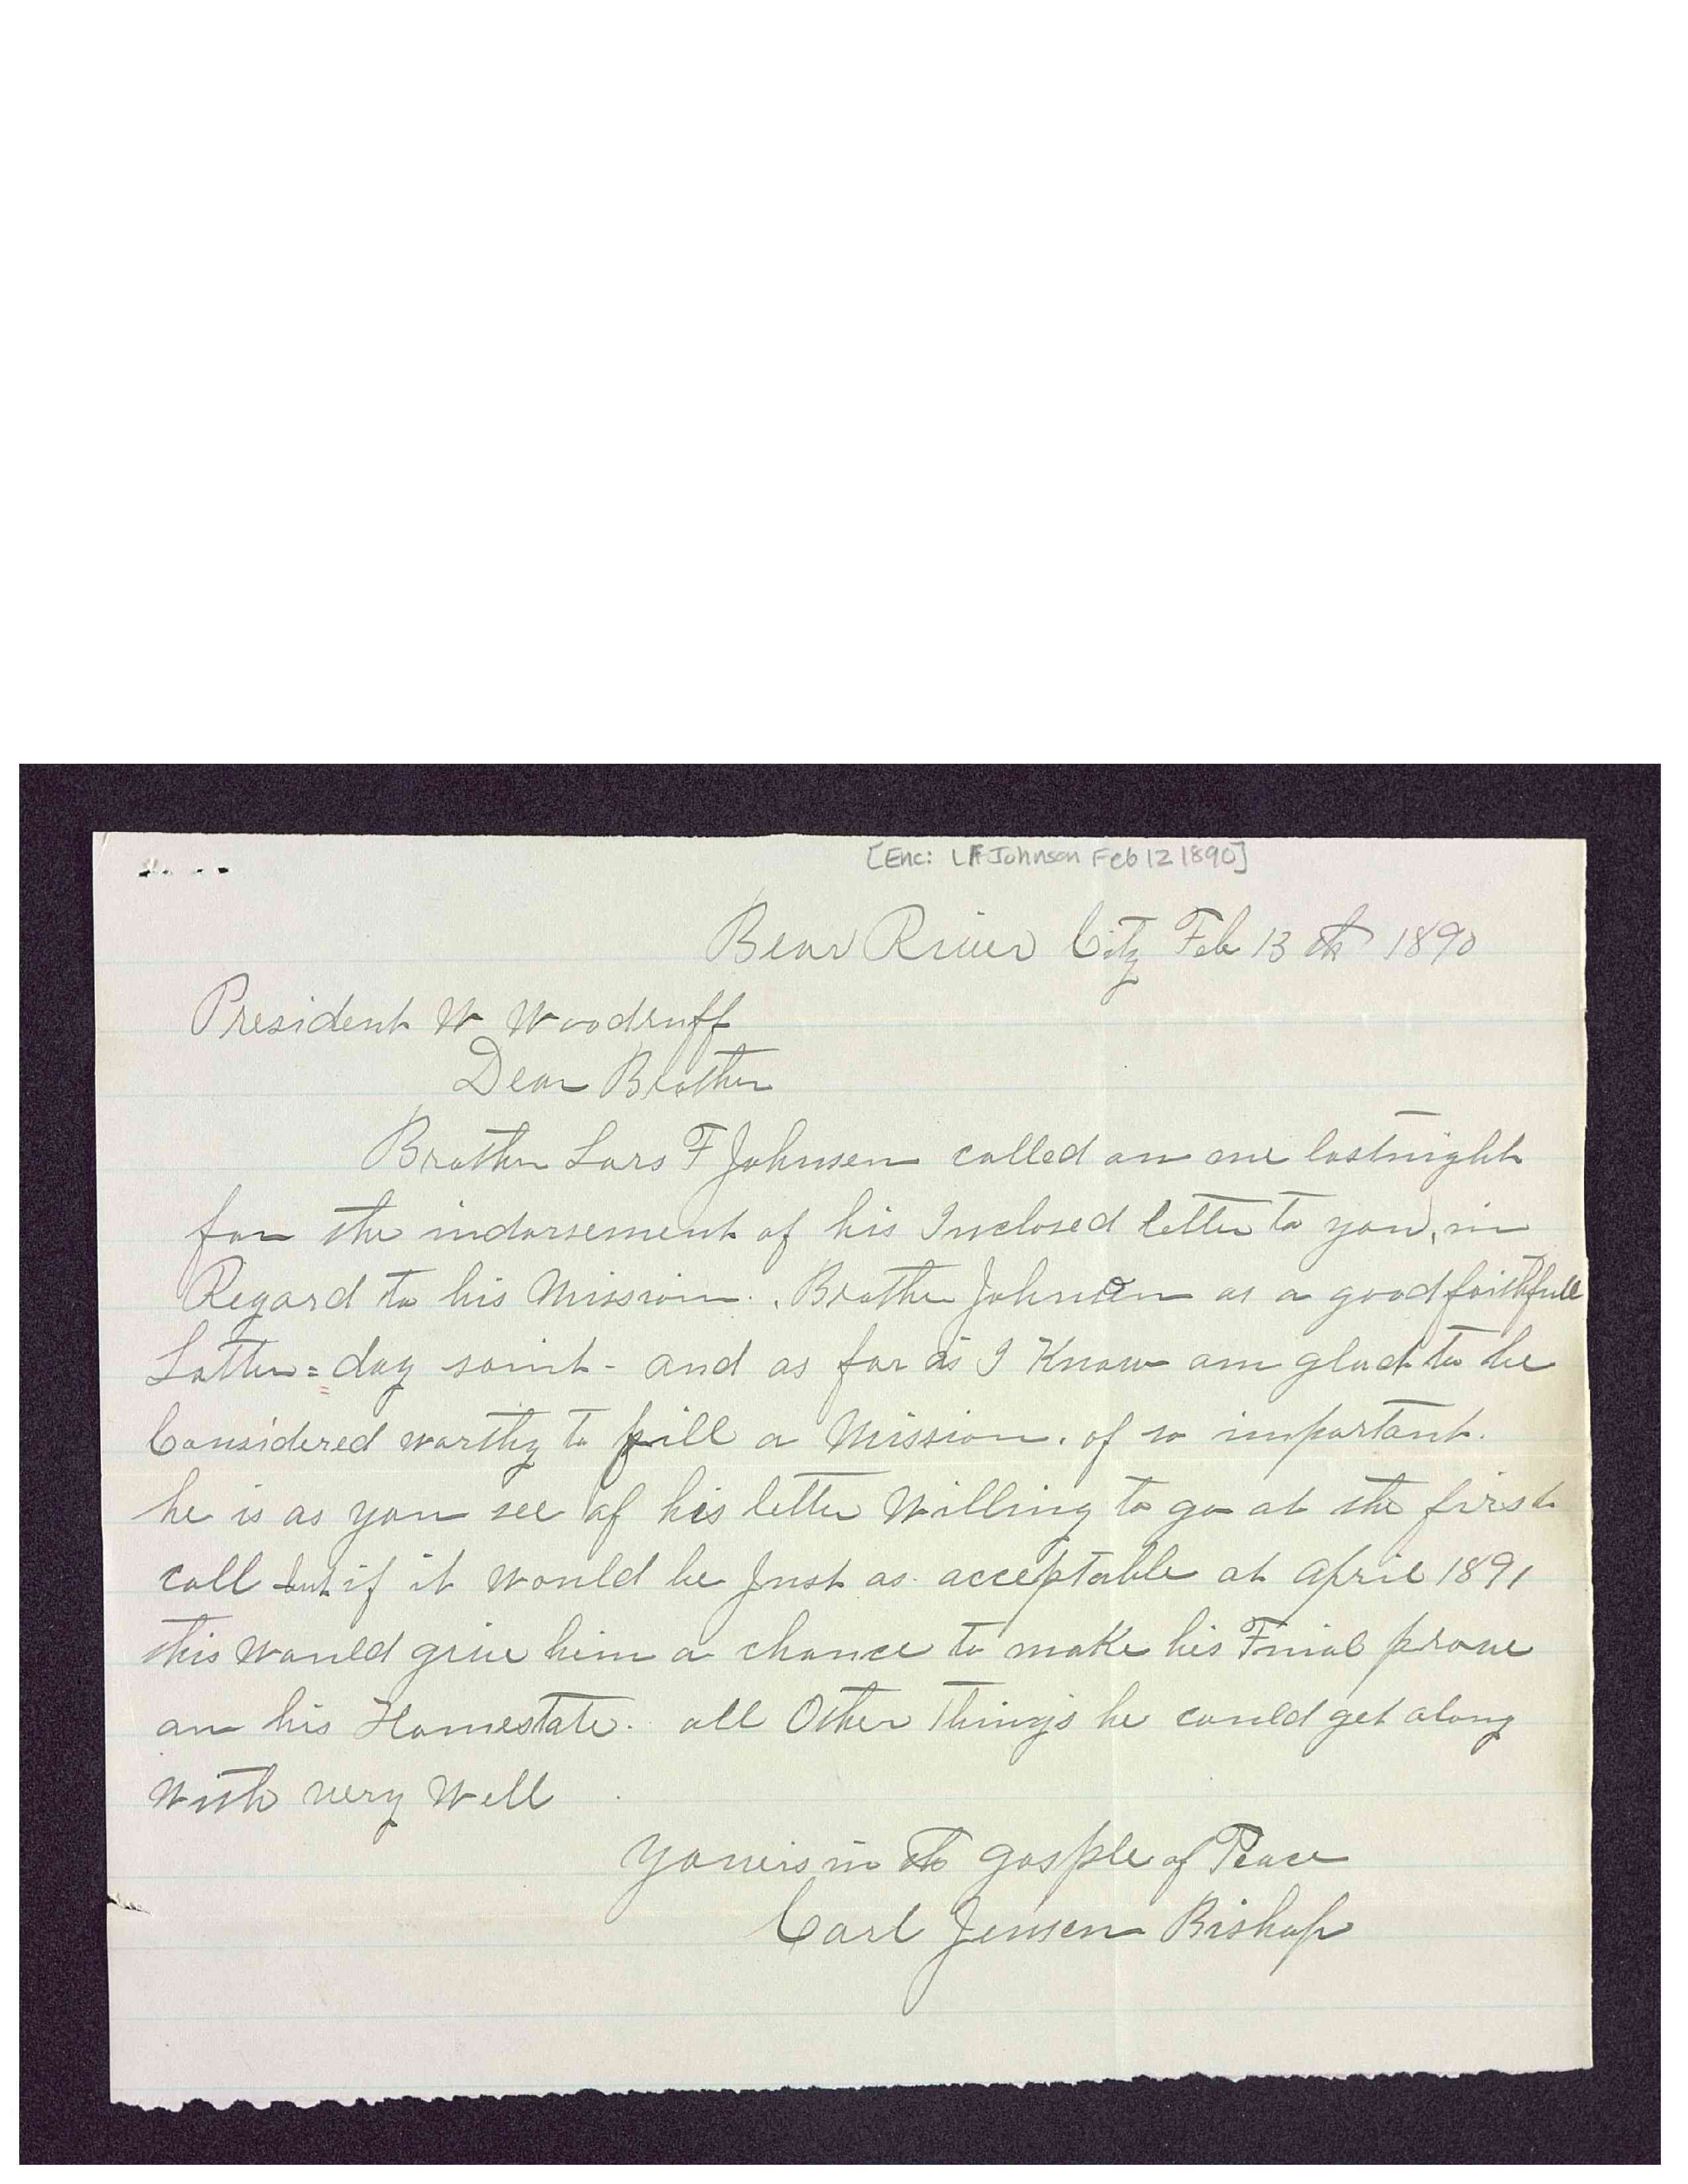 [Enc: LF Johnson Feb 12 1890]
Bear River City Feb 13th 1890
President W Woodruff
Dear Brother
Brother Lars F Johnsen called on me lastnight
for the indorsement of his Inclosed letter to you, in
Regard to his Mission. Brother Johnson as a good faithfull
Latter=day saint - and as far as I Know am glad to be
Considered worthy to fill a Mission. of so important.
he is as you see of his letter Willing to go at the first
call but if it would be Just as acceptable at april 1891
this would give him a chance to make his Finial prove
on his Homestate. all Other Things he could get along
with very well
Youers in the gosple of Peace
Carl Jensen Bishop